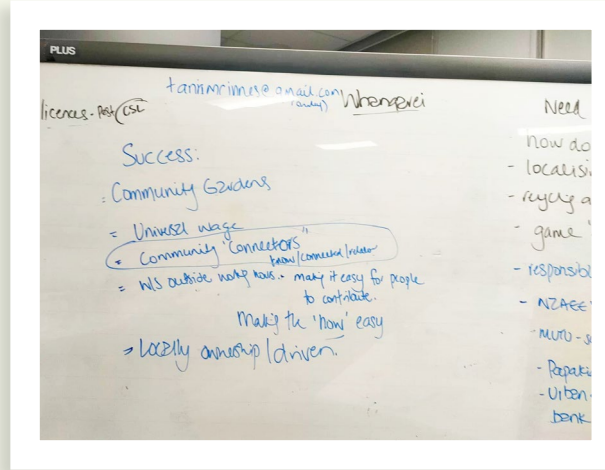 PLUS
Whangarei
licences - Post CSL
Success:
- Community Gardens
= Universal wage
- Community "Connectors"
know/connected/relator
= W/S outside working hours - making it easy for people
to contribute.
Making the 'how' easy
= Locally ownership / driven.
Need
how do
- localisi
- recycling a
- game
- responsibl
- NZAEE
- Papaki
- Urban
bank